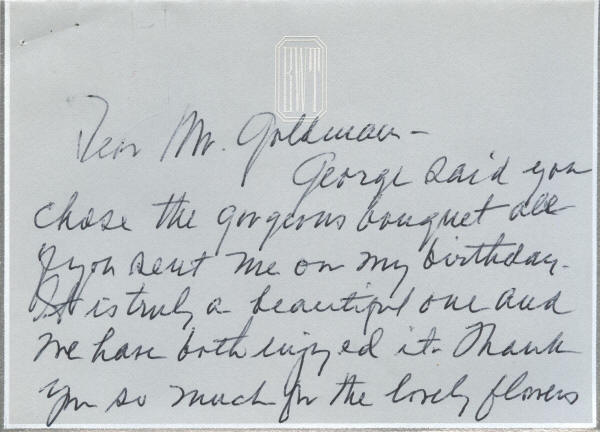 RWT
Dear Mr. Goldman -
George said you
chose the gorgeous bouquet all
of you sent me on my birthday.
It is truly a beautiful one and
we have both enjoyed it. Thank
you so much for the lovely flowers